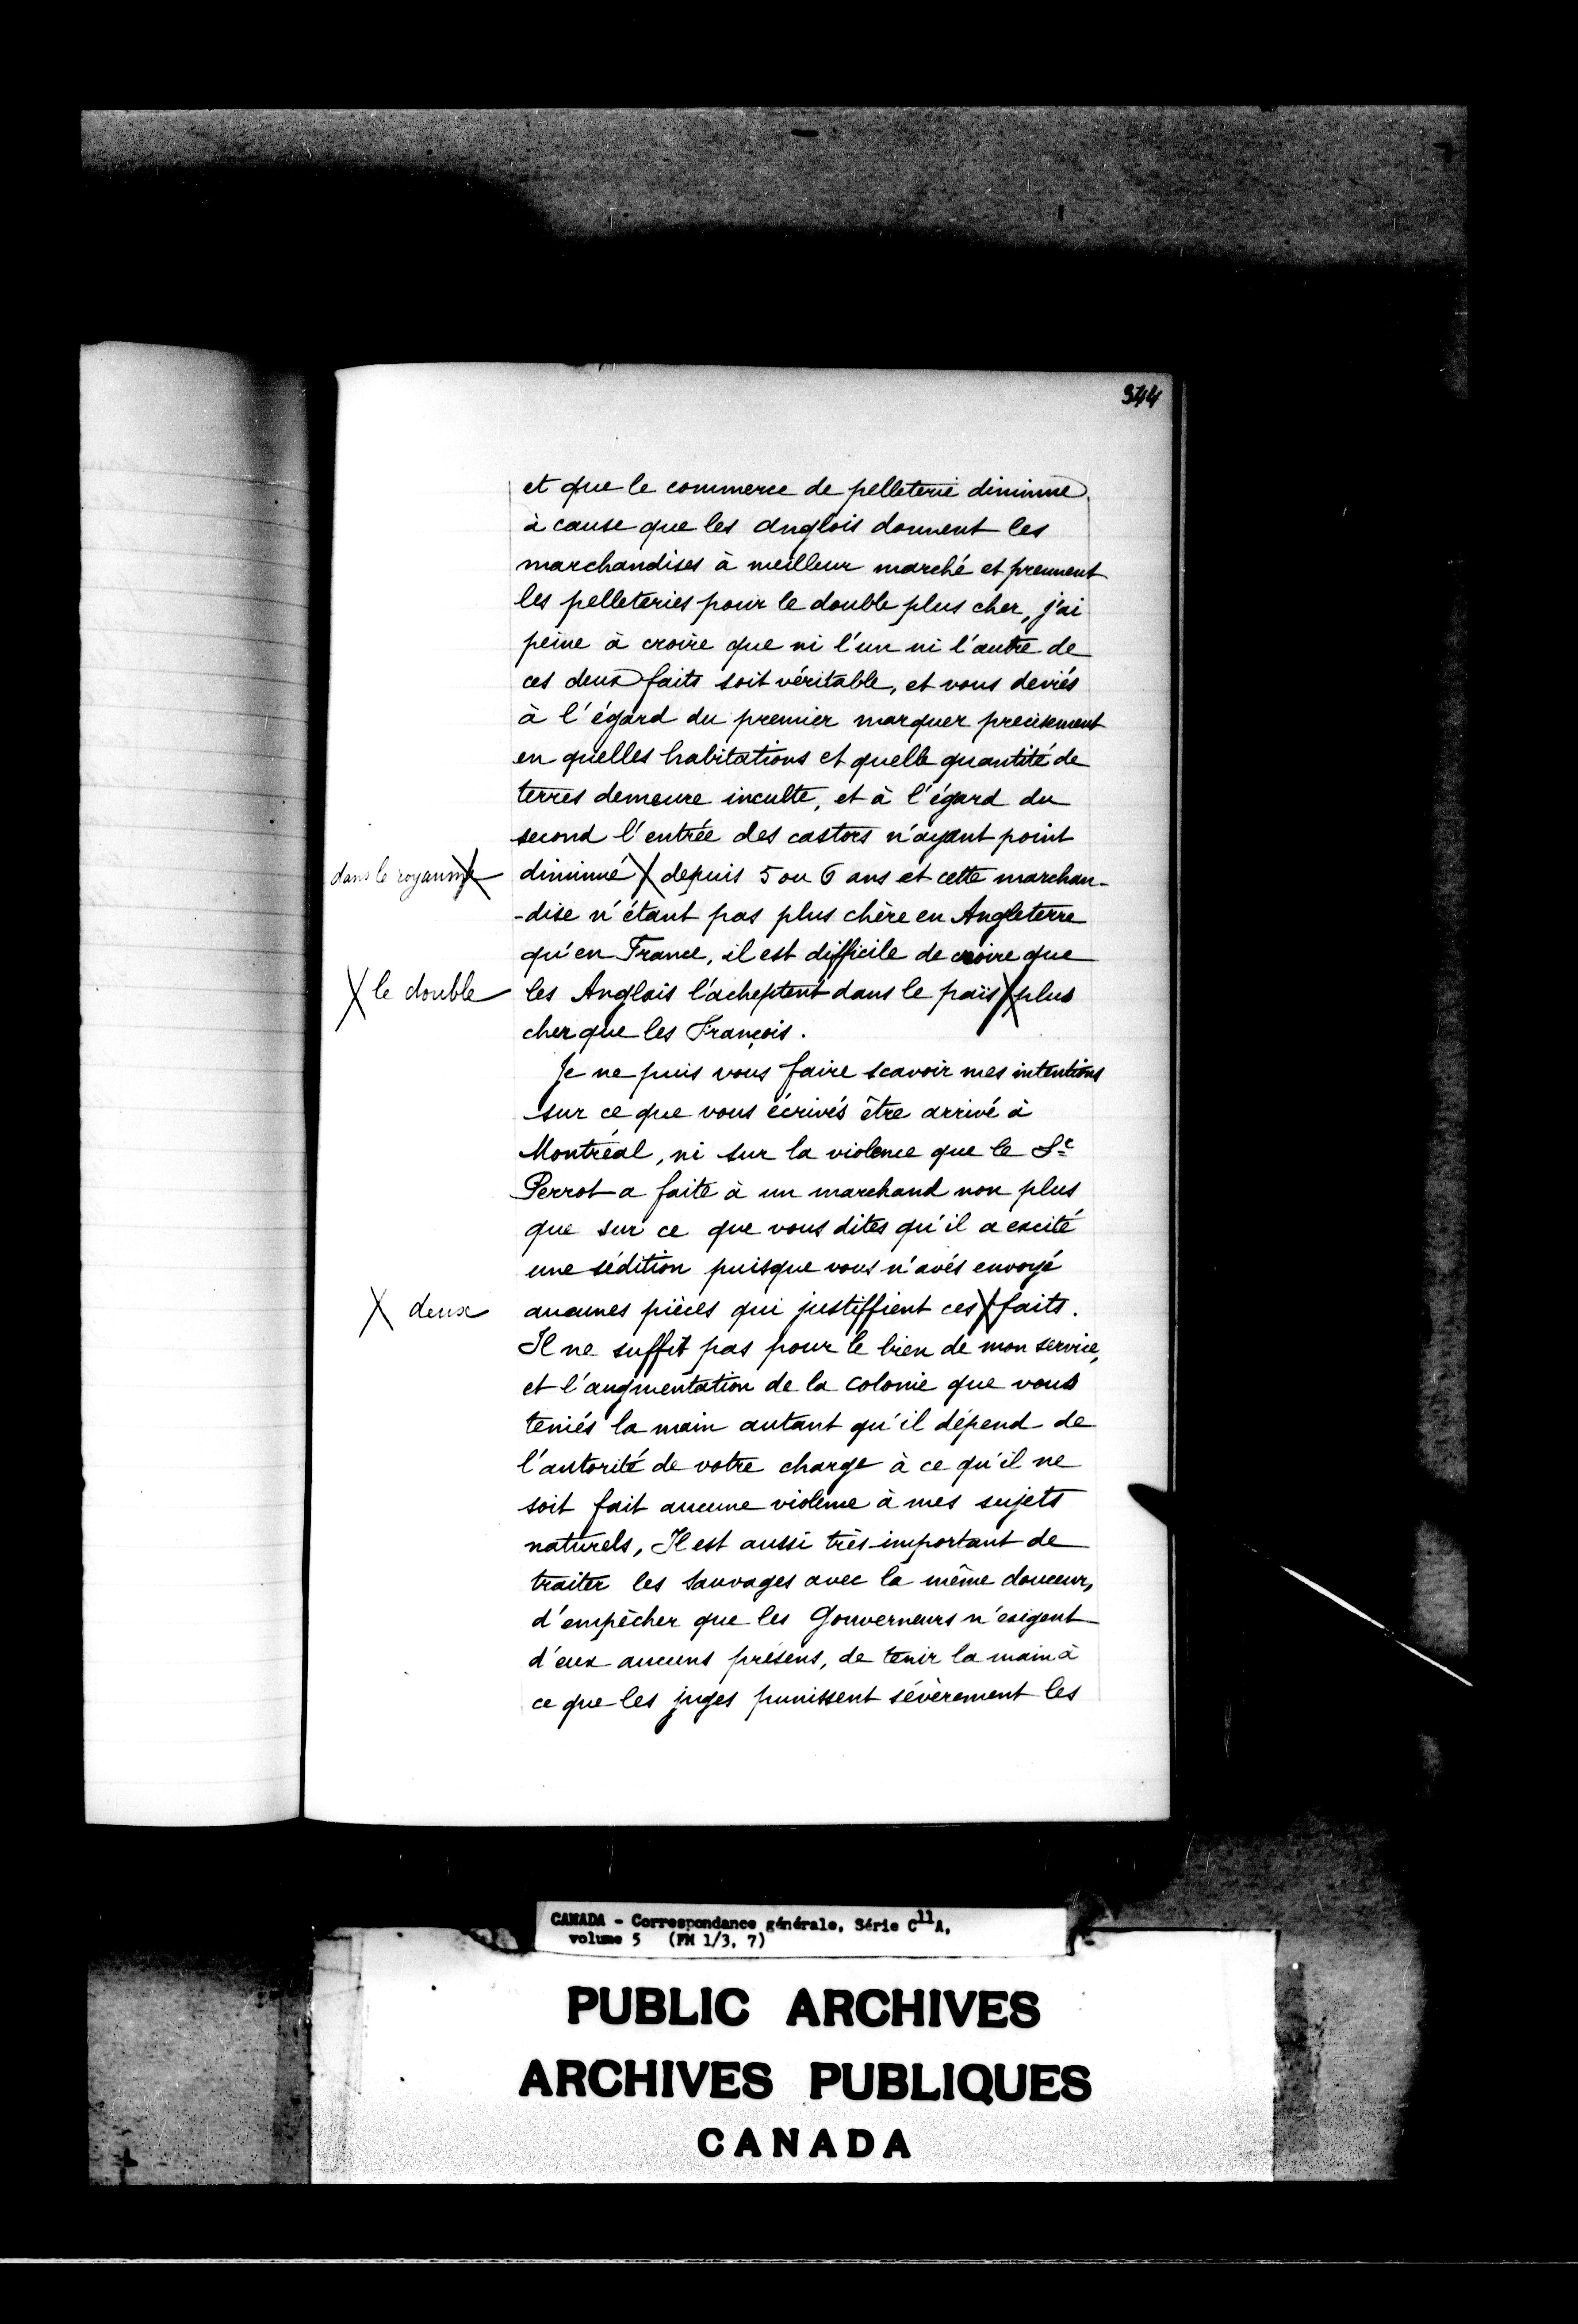 344
et que le commerce de pelleterie diminue
à cause que les anglois donnent les
marchandises à meilleur marché et prennent
les pelleteries pour le double plus cher, j'ai
peine à croire que ni l'un ni l'autre de
ces deux faits soit véritable, et vous deviés
à l'égard du premier marquer precisement
en quelles habitations et quelle quantité de
terres demeure inculte, et à l'égard du
second l'entrée des castors n'ayant point
dans le royaume X
diminué X depuis 5 ou 6 ans et cette marchan-
-dise n'étant pas plus chère en Angleterre
qu'en France, il est difficile de croire que
X le double
les Anglais l'acheptent dans le païs X plus
cher que les François.
Je ne puis vous faire scavoir mes intentions
sur ce que vous écrivés être arrivé à
Montréal, ni sur la violence que le Sr
Perrot a faite à un marchand non plus
que sur ce que vous dites qu'il a excité
une sédition puisque vous n'avés envoyé
X deux
aucunes pièces qui justiffient ces X faits.
Il ne suffit pas pour le bien de mon service,
et l'augmentation de la colonie que vous
teniés la main autant qu'il dépend de
l'autorité de votre charge à ce qu'il ne
soit fait aucune violence à mes sujets
naturels, Il est aussi très-important de
traiter les Sauvages avec la même douceur,
d'empêcher que les Gouverneurs n'exigent
d'eux aucuns présens, de tenir la main à
ce que les juges punissent sévèrement les
CANADA - Correspondance générale, Série C11A,
volume 5 (FM 1/3, 7)
PUBLIC ARCHIVES
ARCHIVES PUBLIQUES
CANADA